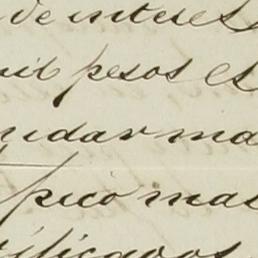 de interes
mil pesos es
udar ma
pico mas
ificavos